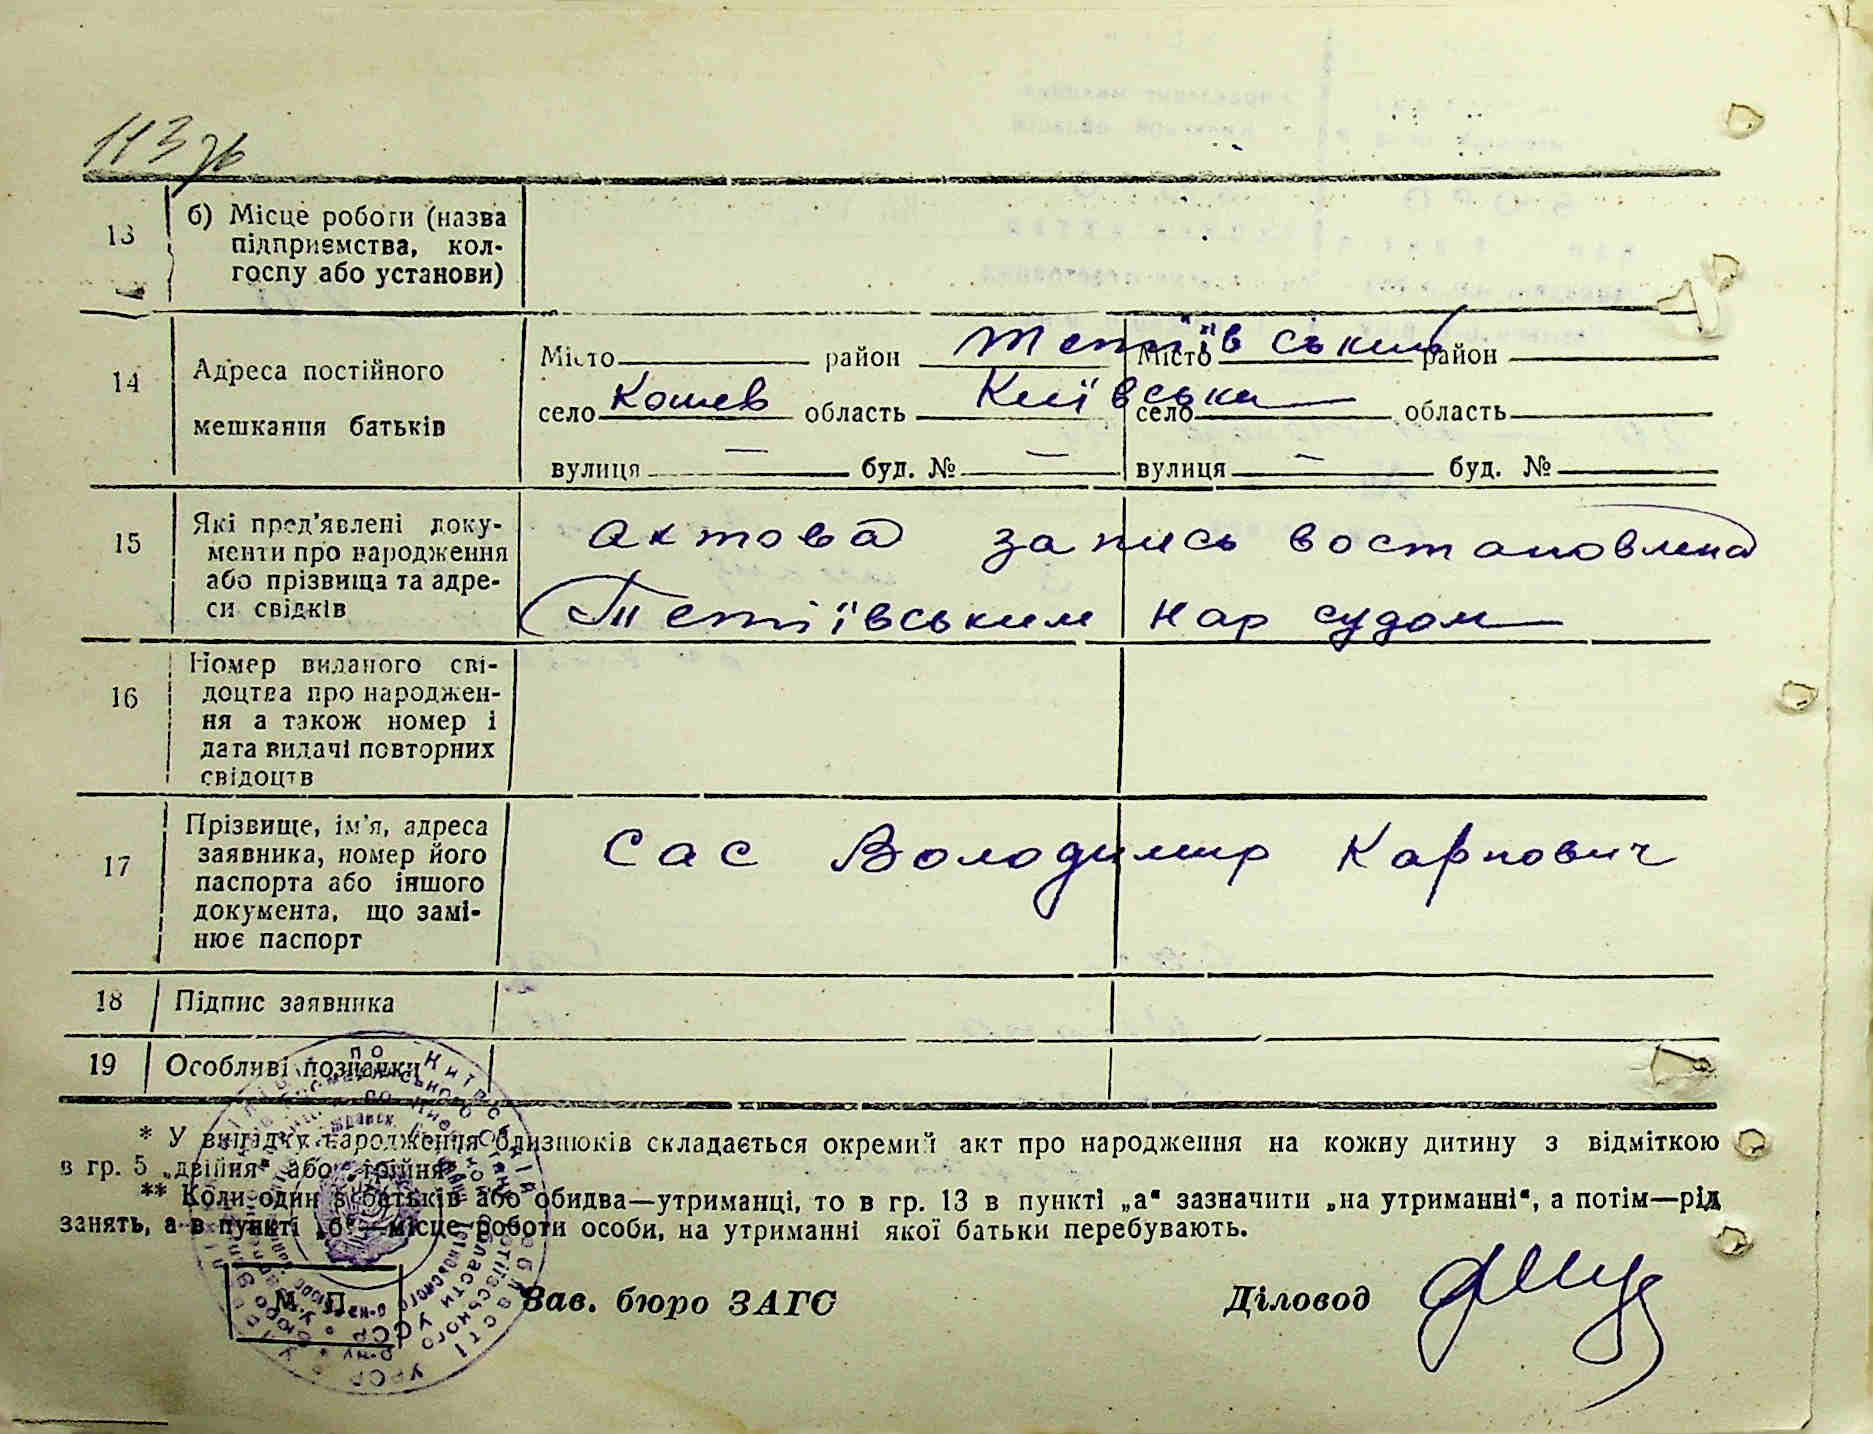 113 зв
13
б) Місце роботи (назва
підприємства, кол-
госпу або установи)
14
Адреса постійного
мешкання батьків
Місто район Тетіївський Місто район
село Кошев область Київська село область
вулиця — буд. № — вулиця — буд. №
15
Які пред'явлені доку-
менти про народження
або прізвища та адре-
си свідків
Актова запись востановлена
Тетіївським нар судом
16
Номер виданого сві-
доцтва про народжен-
ня а також номер і
дата видачі повторних
свідоцтв
17
Прізвище, ім'я, адреса
заявника, номер його
паспорта або іншого
документа, що замі-
нює паспорт
Сас Володимир Карпович
18 Підпис заявника
19 Особливі позначки
* У випадку народження близнюків складається окремий акт про народження на кожну дитину з відміткою
в гр. 5 „двійня“ або „трійня“.
** Коли один з батьків або обидва—утриманці, то в гр. 13 в пункті „а“ зазначити „на утриманні“, а потім—рід
занять, а в пункті „б“—місце роботи особи, на утриманні якої батьки перебувають.
М. П. Зав. бюро ЗАГС Діловод